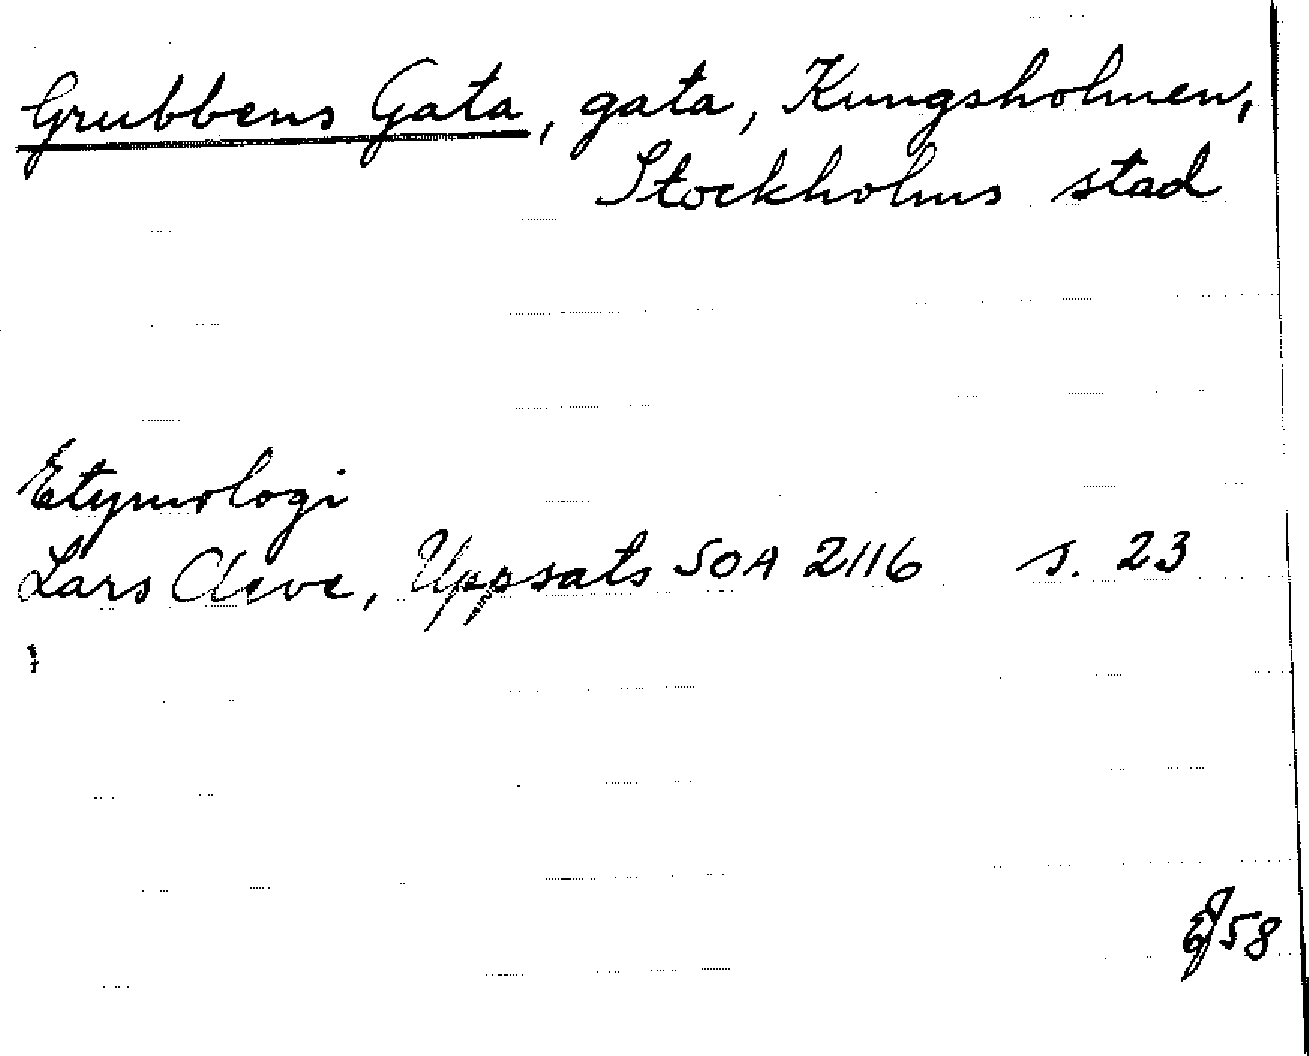 Grubbens Gata, gata, Kungsholmen,
Stockholms stad
Etymologi
Lars Cleve, Uppsats SOA 2116 s. 23
58